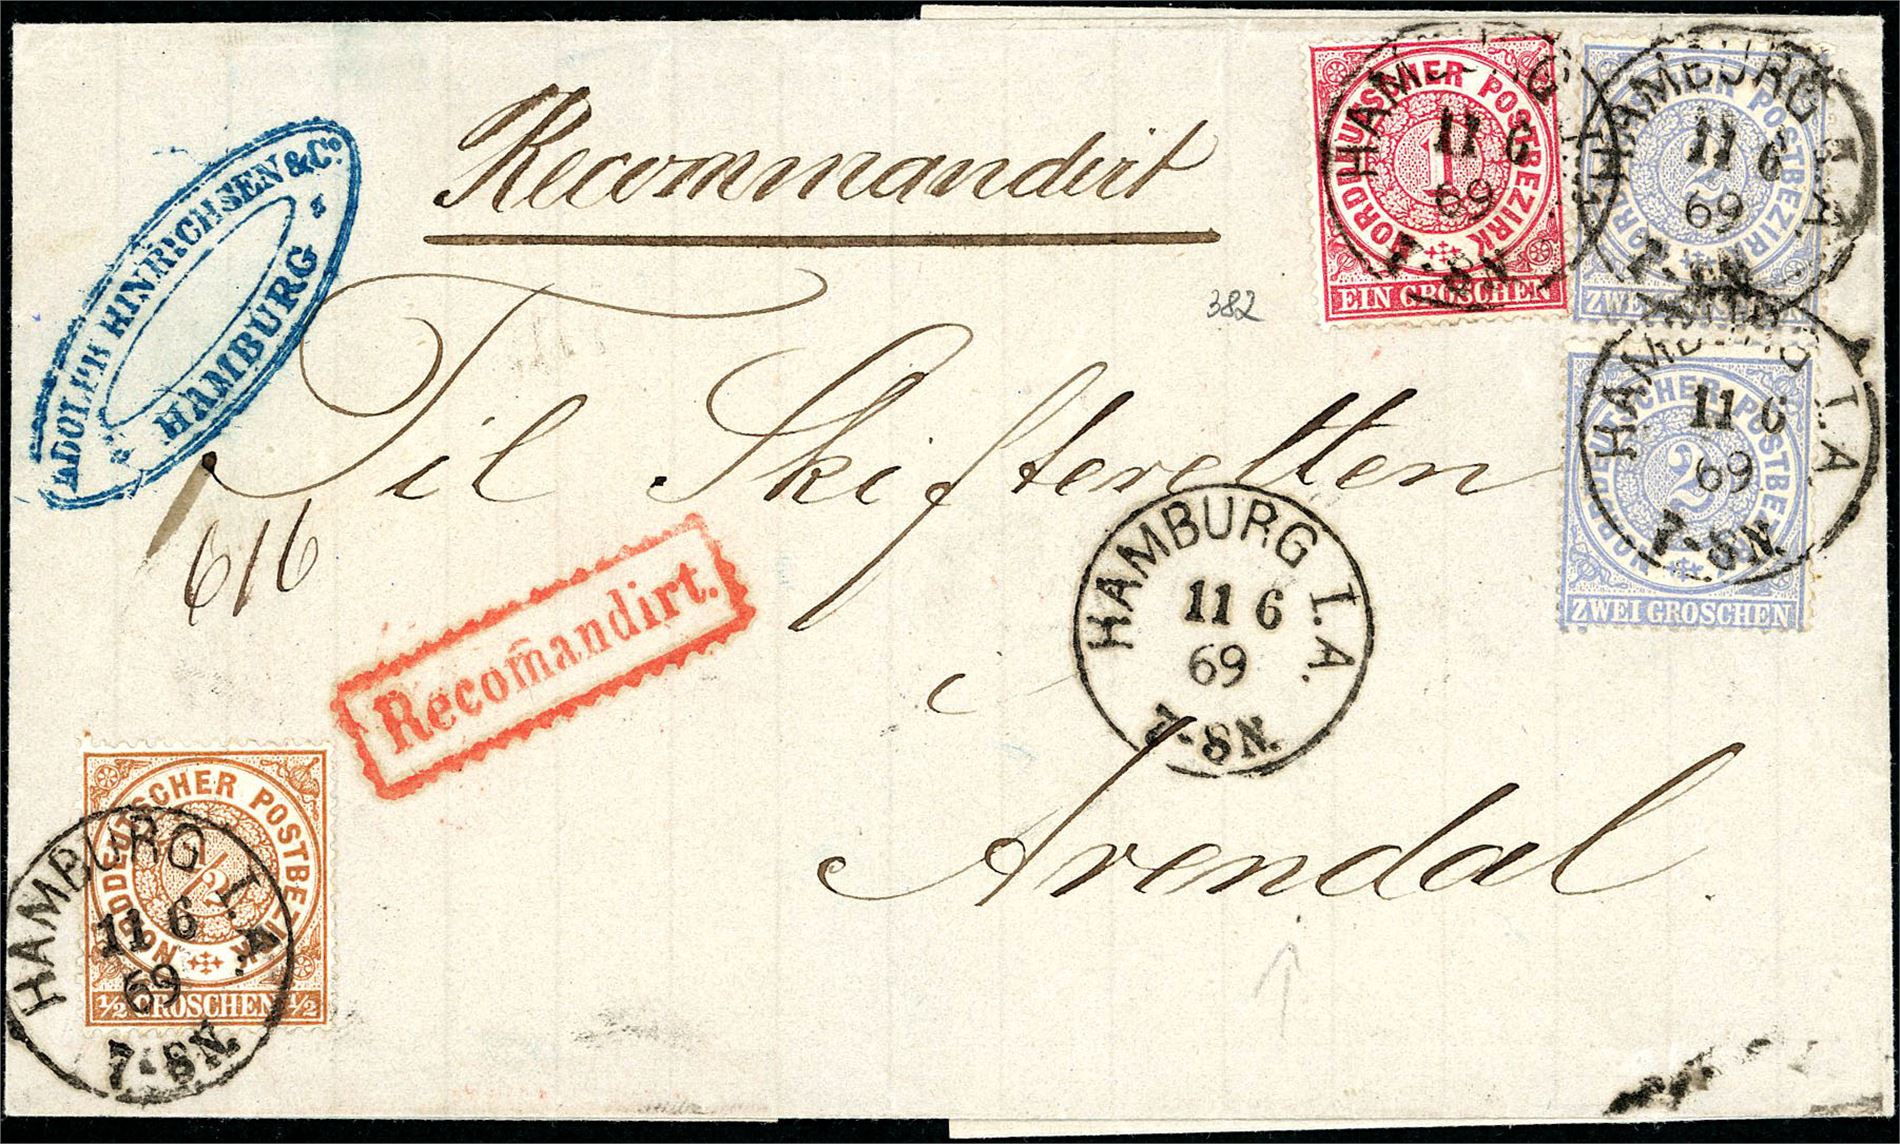 Recommandirt
ADOLPH HINRICHSEN & Co.
HAMBURG
NORDDEUTSCHER POSTBEZIRK
1
EIN GROSCHEN
HAMBURG I.A.
11 6
69
7-8N.
NORDDEUTSCHER POSTBEZIRK
2
ZWEI GROSCHEN
HAMBURG I.A.
11 6
69
7-8N.
382
Til Skifteretten
616
NORDDEUTSCHER POSTBEZIRK
2
ZWEI GROSCHEN
HAMBURG I.A.
11 6
69
7-8N.
Recom̄andirt.
HAMBURG I.A.
11 6
69
7-8N.
i
Arendal
NORDDEUTSCHER POSTBEZIRK
1/2
1/2 GROSCHEN 1/2
HAMBURG I.A.
11 6
69
7-8N.